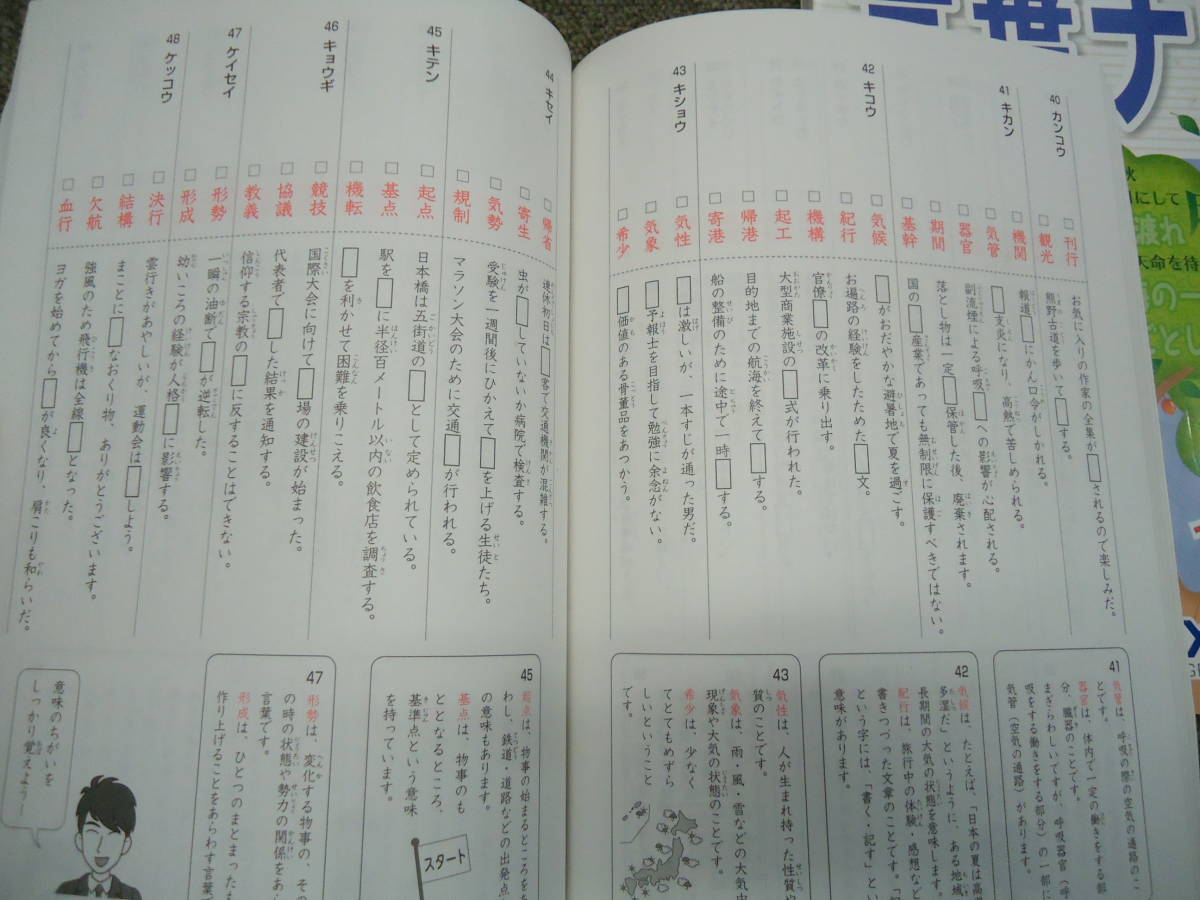 40 カンコウ
□刊行 お気に入りの作家の全集が□されるので楽しみだ。
□観光 熊野古道を歩いて□する。
41 キカン
□機関 報道□にかん口令がしかれる。
□気管 □支炎になり、高熱で苦しめられる。
□器官 副流煙による呼吸□への影響が心配される。
□期間 落とし物は一定□保管した後、廃棄されます。
□基幹 国の□産業であっても無制限に保護すべきではない。
42 キコウ
□気候 □がおだやかな避暑地で夏を過ごす。
□紀行 お遍路の経験をしたためた□文。
□機構 官僚□の改革に乗り出す。
□起工 大型商業施設の□式が行われた。
□帰港 目的地までの航海を終えて□する。
□寄港 船の整備のために途中で一時□する。
43 キショウ
□気性 □は激しいが、一本すじが通った男だ。
□気象 □予報士を目指して勉強に余念がない。
□希少 □価値のある骨董品をあつかう。
41
気管は、呼吸の際の空気の通路のこ
とです。
器官は、体内で一定の働きをする部
分、臓器のことです。
まぎらわしいですが、呼吸器官（呼
吸をする働きをする部分）の一部に
気管（空気の通路）があります。
42
気候は、たとえば、「日本の夏は高
多湿だ」というように、ある地域
長期間の大気の状態を意味します。
紀行は、旅行中の体験・感想など
書きつづった文章のことです。「紀
という字には、「書く・記す」とい
意味があります。
43
気性は、人が生まれ持った性質や
質のことです。
気象は、雨・風・雪などの大気中
現象や大気の状態のことです。
希少は、少なく
てとてもめずら
しいということ
です。
44 キセイ
□帰省 連休初日は□客で交通機関が混雑する。
□寄生 虫が□していないか病院で検査する。
□気勢 受験を一週間後にひかえて□を上げる生徒たち。
□規制 マラソン大会のために交通□が行われる。
45 キテン
□起点 日本橋は五街道の□として定められている。
□基点 駅を□に半径百メートル以内の飲食店を調査する。
□機転 □を利かせて困難を乗りこえる。
46 キョウギ
□競技 国際大会に向けて□場の建設が始まった。
□協議 代表者で□した結果を通知する。
□教義 信仰する宗教の□に反することはできない。
47 ケイセイ
□形勢 一瞬の油断で□が逆転した。
□形成 幼いころの経験が人格□に影響する。
48 ケッコウ
□決行 雲行きがあやしいが、運動会は□しよう。
□結構 まことに□なおくり物、ありがとうございます。
□欠航 強風のため飛行機は全線□となった。
□血行 ヨガを始めてから□が良くなり、肩こりも和らいだ。
45
起点は、物事の始まるところを
わし、鉄道・道路などの出発点
の意味もあります。
基点は、物事のも
ととなるところ、
基準点という意味
を持っています。
スタート
47
形勢は、変化する物事の、そ
の時の状態や勢力の関係をあ
言葉です。
形成は、ひとつのまとまった
作り上げることをあらわす言葉
意味のちがいを
しっかり覚えよう！